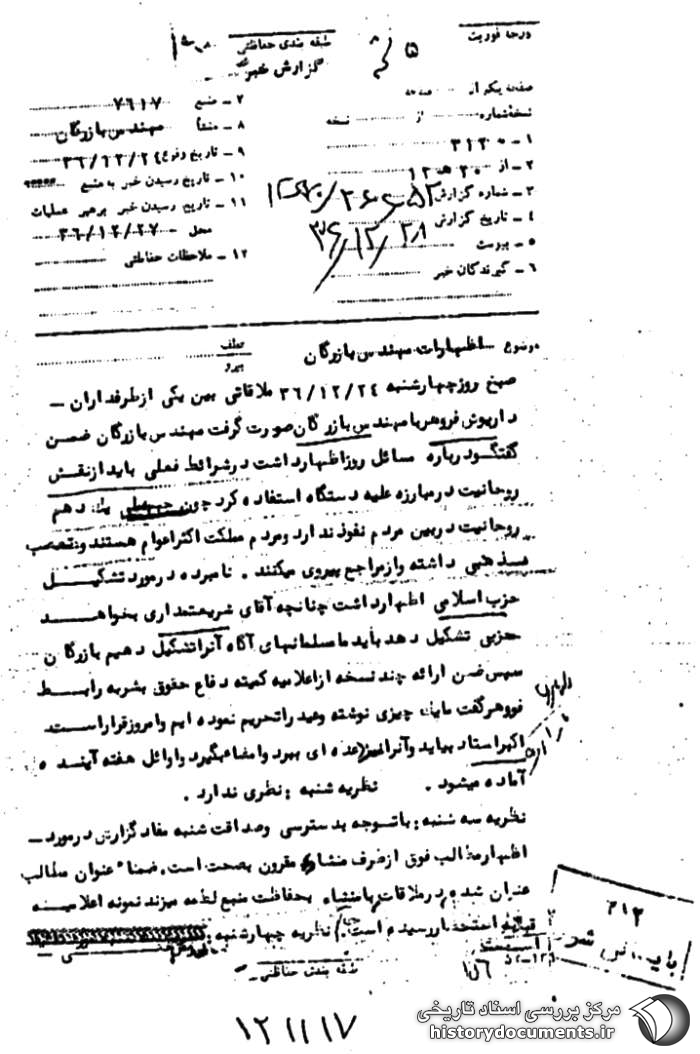 درجه فوریت
طبقه بندی حفاظتی
گزارش خبر
صفحه یکم از صفحه
نسخه شماره از نسخه
۱ - ۳۱۲۰۰
۲ - از ۲۰ هـ ۱۲
۳ - شماره گزارش
۴ - تاریخ گزارش ۳۶/۱۲/۲۸
۵ - پیوست
۶ - گیرندگان خبر
۷ - منبع ۷۶۱۷
۸ - منشأ مهندس بازرگان
۹ - تاریخ وقوع ۳۶/۱۲/۲۴
۱۰ - تاریخ رسیدن خبر به منبع
۱۱ - تاریخ رسیدن خبر برهبر عملیات
محل - ۳۶/۱۲/۲۷
۱۲ - ملاحظات حفاظتی
موضوع - اظهارات مهندس بازرگان
عطف
پیرو
صبح روز چهارشنبه ۳۶/۱۲/۲۴ ملاقاتی بین یکی از طرفداران -
داریوش فروهر با مهندس بازرگان صورت گرفت مهندس بازرگان ضمن
گفتگو درباره مسائل روز اظهار داشت در شرائط فعلی باید از نقش
روحانیت در مبارزه علیه دستگاه استفاده کرد چون
روحانیت در بین مردم نفوذ دارد و مردم مملکت اکثرا عوام هستند و تعصب
مذهبی داشته و از مراجع پیروی میکنند . نامبرده در مورد تشکیل
حزب اسلامی اظهار داشت چنانچه آقای شریعتمداری بخواهد
حزبی تشکیل دهد باید ما مسلمانهای آگاه آنرا تشکیل دهیم بازرگان
سپس ضمن ارائه چند نسخه از اعلامیه کمیته دفاع حقوق بشر به رابط
فروهر گفت ما یک چیزی نوشته و عید را تحریم نموده ایم و امروز قرار است
اکبر استاد بیاید و آنرا نیز عده ای ببرد و امضاء بگیرد و اوائل هفته آینده
آماده میشود . نظریه شنبه : نظری ندارد .
نظریه سه شنبه : با توجه به دسترسی و صداقت شنبه مفاد گزارش در مورد -
اظهار مطالب فوق از طرف منشاء مقرون بصحت است . ضمنا عنوان مطالب
عنوان شده در ملاقات با منشاء بحفاظت منبع لطمه میزند نمونه اعلامیه
قبلاً به استحضار رسیده است . نظریه چهارشنبه :
طبقه بندی حفاظتی
۳۱۲
بایگانی شود
۱۵۶
۱۲۱۱۱۷
مرکز بررسی اسناد تاریخی
historydocuments.ir